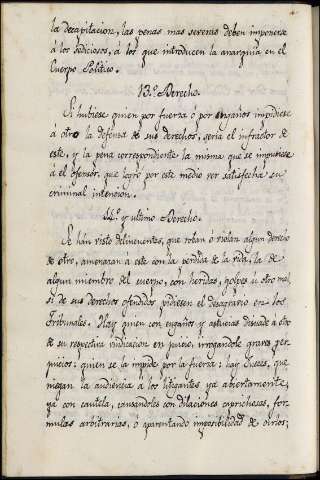 la decapitacion, las penas mas severas deben imponerse
á los sediciosos, á los que introducen la anarquia en el
Cuerpo Politico.
13.º Derecho.
Si hubiese quien por fuerza ó por engaños impidiese
á otro la defensa de sus derechos, seria el infractor de
este, y la pena correspondiente la misma que se impusiese
á el ofensor, que logró por este medio ver satisfecha su
criminal intencion.
14.º y ultimo Derecho.
Se han visto delincuentes, que roban ó violan algun derecho
de otro, amenazan á este con la perdida de la vida, la de
algun miembro del cuerpo, con heridas, golpes ú otro mal,
si de sus derechos ofendidos pidiesen el desagravio en los
Tribunales. Hay quien con engaños y astucias disuade á otro
de su respectiva vindicacion en juicio, irrogandole graves per-
juicios: quien se la impide por la fuerza: hay Jueces, que
niegan la audiencia á los litigantes ya abiertamente,
ya con cautela, cansandoles con dilaciones caprichosas, for-
mulas arbitrarias, ó aparentando imposibilidad de oirlos;